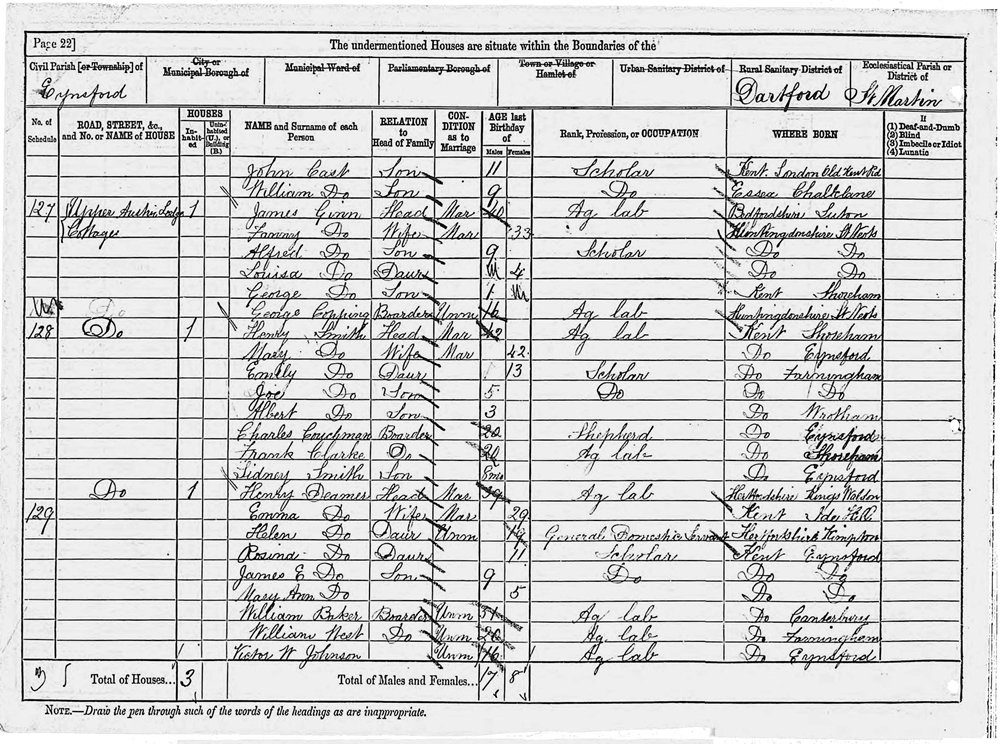 Page 22]
The undermentioned Houses are situate within the Boundaries of the
Civil Parish [or Township] of
City or Municipal Borough of
Municipal Ward of
Parliamentary Borough of
Town or Village or Hamlet of
Urban Sanitary District of
Rural Sanitary District of
Ecclesiastical Parish or District of
Eynsford
Dartford
St. Martin
No. of Schedule
ROAD, STREET, &c., and No. or NAME of HOUSE
HOUSES
In-habit-ed
Unin-habited (U.), or Building (B.)
NAME and Surname of each Person
RELATION to Head of Family
CON-DITION as to Marriage
AGE last Birthday of
Males
Females
Rank, Profession, or OCCUPATION
WHERE BORN
If
(1) Deaf-and-Dumb
(2) Blind
(3) Imbecile or Idiot
(4) Lunatic
John East Son 11 Scholar Kent London Old Kent Rd
William Do Son 9 Do Essex
127 Upper Austin Lodge 1 James Ginn Head Mar 40 Ag lab Bedfordshire Luton
Cottages Fanny Do Wife Mar 33 Huntingdonshire St Neots
Alfred Do Son 9 Scholar Do Do
Louisa Do Daur 4 Do Do
George Do Son 1 Kent Shoreham
George Copping Boarder Unm 16 Ag lab Huntingdonshire St Neots
128 Do 1 Henry Smith Head Mar 42 Ag lab Kent Shoreham
Mary Do Wife Mar 42 Do Eynsford
Emily Do Daur 13 Scholar Do Farningham
Joe Do Son 5 Do Do Do
Albert Do Son 3 Do Wrotham
Charles Couchman Boarder 20 Shepherd Do Eynsford
Frank Clarke Do 20 Ag lab Do Shoreham
Sidney Smith Son 8mo Do Eynsford
Do 1 Henry Deamer Head Mar 39 Ag lab Hertfordshire Kings Waldon
129 Emma Do Wife Mar 29 Kent
Helen Do Daur Unm 19 General Domestic Servant Hertfordshire Kimpton
Rosina Do Daur 11 Scholar Kent Eynsford
James E Do Son 9 Do Do Do
Mary Ann Do 5 Do Do
William Baker Boarder Unm 51 Ag lab Do Canterbury
William West Do Unm Ag lab Do Farningham
Victor W Johnson Unm 16 Ag lab Do Eynsford
3 Total of Houses... 3
Total of Males and Females... 17 8
NOTE.—Draw the pen through such of the words of the headings as are inappropriate.